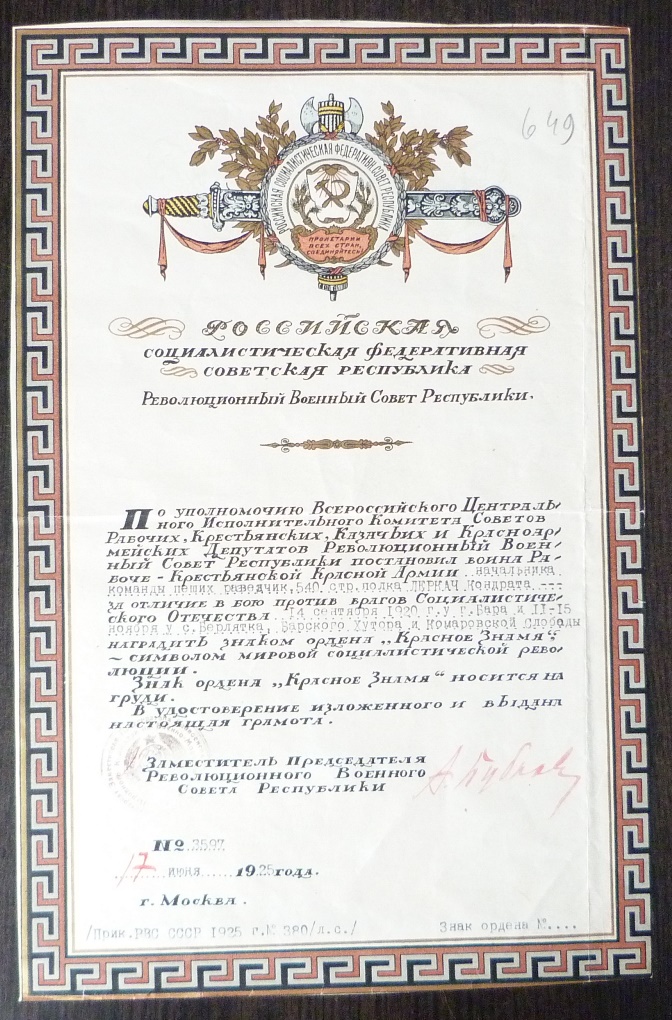 649
РОССИЙСКАЯ СОЦИАЛИСТИЧЕСКАЯ ФЕДЕРАТИВН. СОВЕТ. РЕСПУБЛИКА
ПРОЛЕТАРИИ
ВСЕХ СТРАН,
СОЕДИНЯЙТЕСЬ!
РОССИЙСКАЯ
СОЦИАЛИСТИЧЕСКАЯ ФЕДЕРАТИВНАЯ
СОВЕТСКАЯ РЕСПУБЛИКА
РЕВОЛЮЦИОННЫЙ ВОЕННЫЙ СОВЕТ РЕСПУБЛИКИ.
ПО УПОЛНОМОЧИЮ ВСЕРОССИЙСКОГО ЦЕНТРАЛЬ-
НОГО ИСПОЛНИТЕЛЬНОГО КОМИТЕТА СОВЕТОВ
РАБОЧИХ, КРЕСТЬЯНСКИХ, КАЗАЧЬИХ И КРАСНОАР-
МЕЙСКИХ ДЕПУТАТОВ РЕВОЛЮЦИОННЫЙ ВОЕН-
НЫЙ СОВЕТ РЕСПУБЛИКИ ПОСТАНОВИЛ ВОИНА РА-
БОЧЕ-КРЕСТЬЯНСКОЙ КРАСНОЙ АРМИИ начальника
команды пеших разведчик. 540 стр. полка ДЕРКАЧ Кондрата
ЗА ОТЛИЧИЕ В БОЮ ПРОТИВ ВРАГОВ СОЦИАЛИСТИЧЕ-
СКОГО ОТЕЧЕСТВА 14 сентября 1920 г. у г. Бара и 11-15
ноября у с. Верлятка, Барского Хутора и Комаровской Слободы
НАГРАДИТЬ ЗНАКОМ ОРДЕНА „КРАСНОЕ ЗНАМЯ“,
~ СИМВОЛОМ МИРОВОЙ СОЦИАЛИСТИЧЕСКОЙ РЕВО-
ЛЮЦИИ.
ЗНАК ОРДЕНА „КРАСНОЕ ЗНАМЯ“ НОСИТСЯ НА
ГРУДИ.
В УДОСТОВЕРЕНИЕ ИЗЛОЖЕННОГО И ВЫДАНА
НАСТОЯЩАЯ ГРАМОТА.
ЗАМЕСТИТЕЛЬ ПРЕДСЕДАТЕЛЯ
РЕВОЛЮЦИОННОГО ВОЕННОГО
СОВЕТА РЕСПУБЛИКИ
А. Бубнов
№ 3597
17 июня 1925 ГОДА.
Г. МОСКВА.
/Прик. РВС СССР 1925 г. № 380/л.с./
Знак ордена №....